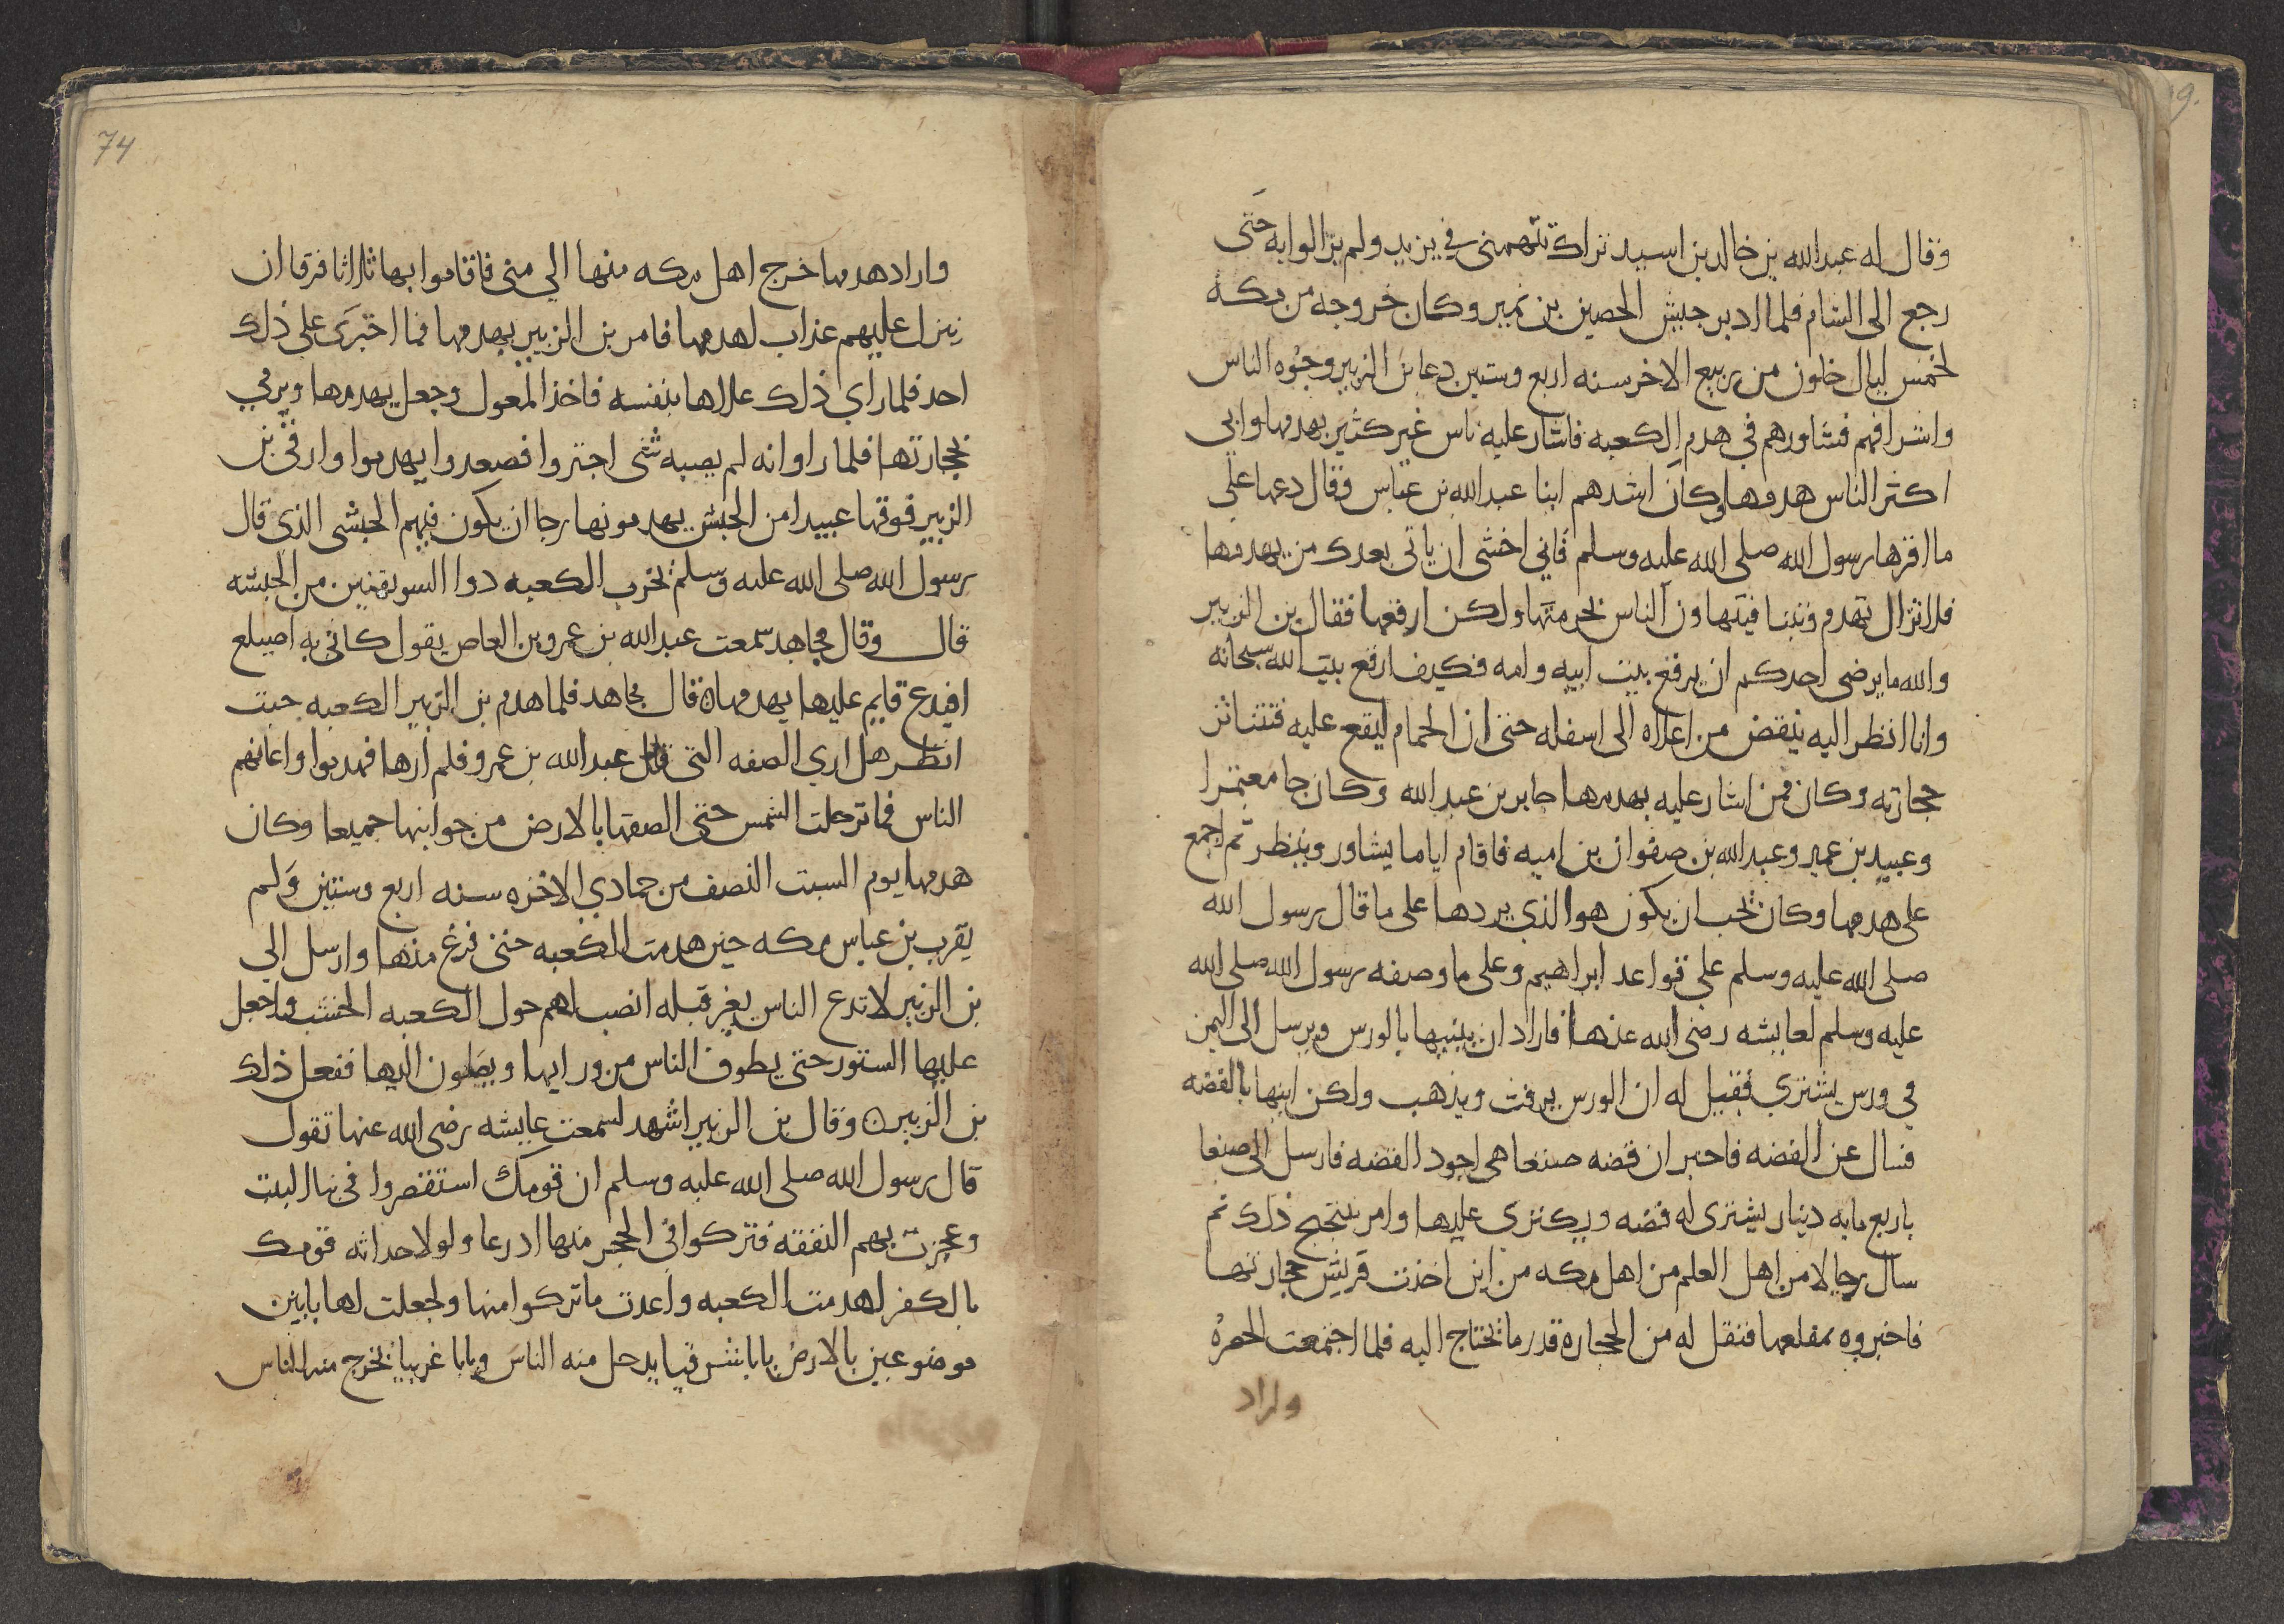 وقال له عبد الله بن خالد بن اسيد تراك تتهمنى في يزيد ولم يزالوا به حتى
رجع الى الشام فلما ادبر جيش الحصين بن نمير وكان خروجه من مكة
لخمس ليال خلون من ربيع الاخر سنه اربع وستين دعا بن الزبير وجوه الناس
واشرافهم فشاورهم في هدم الكعبه فاشار عليه ناس غير كثير بهدمها وابي
اكثر الناس هدمها وكان اشدهم ابنا عبد الله بن عباس وقال دعها على
ما اقرها رسول الله صلى الله عليه وسلم فاني اخشى ان ياتى بعدك من يهدمها
فلا تزال تهدم وتبنا فيتهاون الناس بحرمتها ولكن ارقعها فقال بن الزبير
والله ما يرضى احدكم ان يرقع بيت ابيه وامه فكيف ارقع بيت الله سبحانه
وانا انظر اليه ينقض من اعلاه الى اسفله حتى ان الحمام ليقع عليه فتتناثر
حجارته وكان ممن اشار عليه بهدمها جابر بن عبد الله وكان جا معتمرا
وعبيد بن عمير وعبد الله بن صفوان بن اميه فاقام اياما يشاور وينظر ثم اجمع
على هدمها وكان يحب ان يكون هو الذي يردها على ما قال رسول الله
صلى الله عليه وسلم على قواعد ابراهيم وعلى ما وصفه رسول الله صلى الله
عليه وسلم لعايشه رضى الله عنها فاراد ان يبنيها بالورس ويرسل الى اليمن
في ورس يشترى فقيل له ان الورس يرفت ويذهب ولكن ابنها بالقصه
فسال عن القصه فاخبر ان قصه صنعا هى اجود القصه فارسل الى صنعا
باربع مايه دينار يشترى له قصه ويكترى عليها وامر بتنجيح ذلك ثم
سال رجالا من اهل العلم من اهل مكه من اين اخذت قريش حجارتها
فاخبروه بمقلعها فنقل له من الحجاره قدر ما يحتاج اليه فلما اجتمعت الحجره
واراد
74
واراد هدمها خرج اهل مكه منها الي منى فاقاموا بها ثلاثا فرقا ان
ينزل عليهم عذاب لهدمها فامر بن الزبير بهدمها فما اجترى على ذلك
احد فلما راي ذلك علاها بنفسه فاخذ المعول وجعل يهدمها ويرمي
بحجارتها فلما راوا انه لم يصبه شى اجتروا فصعدوا يهدموا وارقى بن
الزبير فوقها عبيدا من الحبش يهدمونها رجا ان يكون فيهم الحبشى الذي قال
رسول الله صلى الله عليه وسلم يخرب الكعبه ذوا السويقتين من الحبشه
قال وقال مجاهد سمعت عبد الله بن عمرو بن العاص يقول كانى به اصيلع
افيدع قايم عليها يهدمها قال مجاهد فلما هدم بن الزبير الكعبه جيت
انظر هل اري الصفه التى قال عبد الله بن عمرو فلم ارها فهدموا واعانهم
الناس فما ترحلت الشمس حتى الصقها بالارض من جوانبها جميعا وكان
هدمها يوم السبت النصف من جمادي الاخره سنه اربع وستين ولم
يقرب بن عباس مكه حين هدمت الكعبه حتى فرغ منها وارسل الي
بن الزبير لا تدع الناس بغير قبله انصب لهم حول الكعبه الخشب واجعل
عليها الستور حتى يطوف الناس من ورايها ويصلون اليها ففعل ذلك
بن الزبير وقال بن الزبير اشهد لسمعت عايشه رضى الله عنها تقول
قال رسول الله صلى الله عليه وسلم ان قومك استقصروا في بنا البيت
وعجزت بهم النفقه فتركوا في الحجر منها ادرعا ولولا حداثه قومك
بالكفر لهدمت الكعبه واعدت ما تركوا منها ولجعلت لها بابين
موضوعين بالارض بابا شرقيا يدخل منه الناس وبابا غربيا يخرج منه الناس